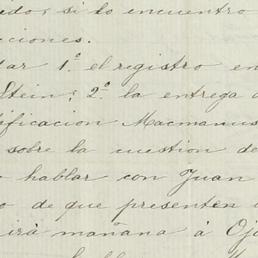 ido, si lo encuentro
cciones.
ar 1º el registro en
Stein; 2º la entrega d
ificacion Macmanus
sobre la cuestion de
hablar con Juan
o de que presenten
irá mañana á Oj